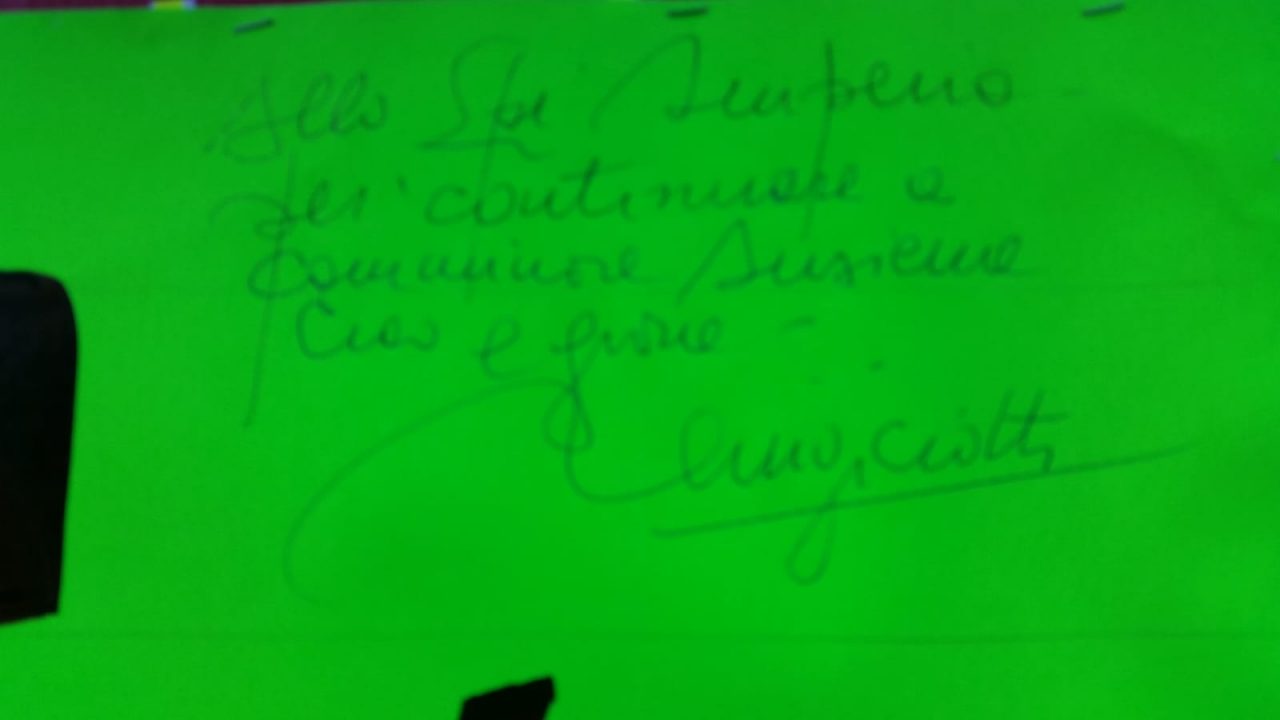 Allo Spi
per continuare a
camminare insieme
Ciao e grazie -
Luigi Ciotti